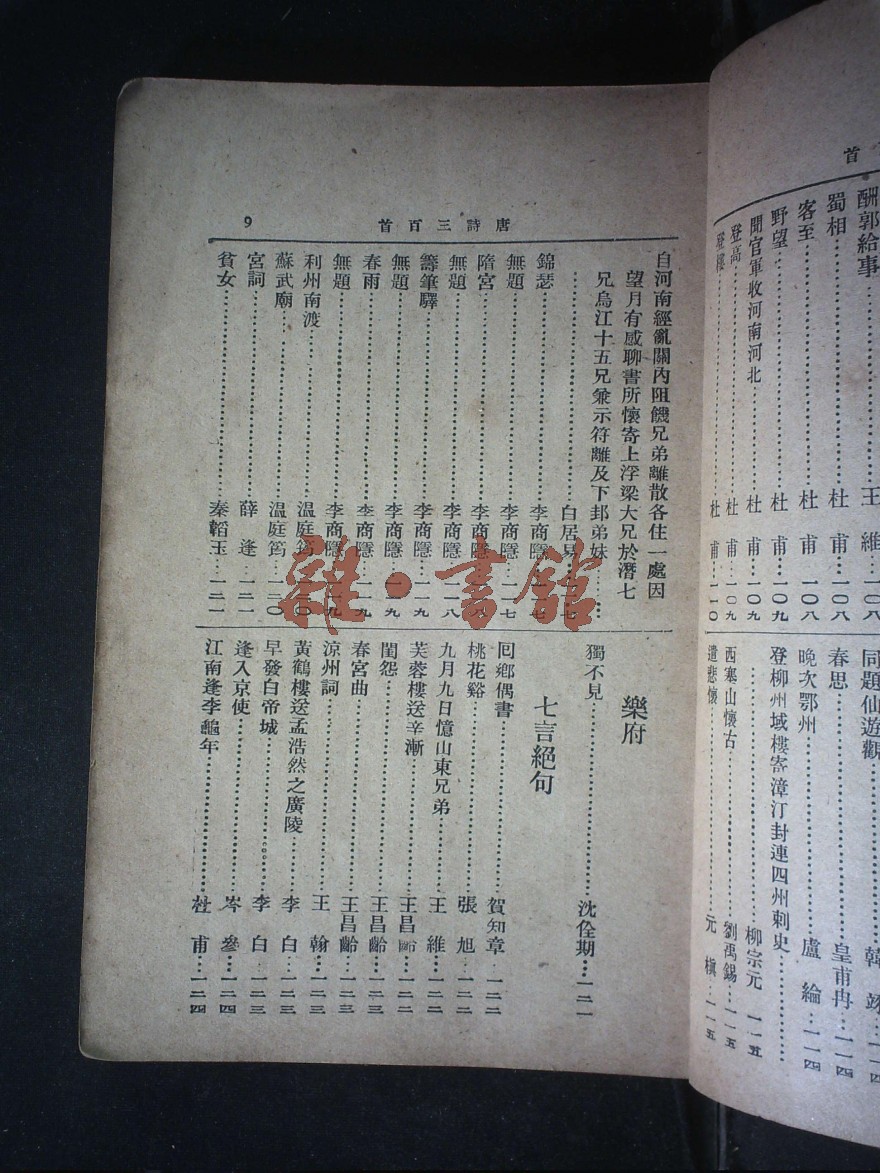 首
酬郭給事……王維…一〇八
蜀相……杜甫…一〇八
客至……杜甫…一〇八
野望……杜甫…一〇九
聞官軍收河南河北……杜甫…一〇九
登高……杜甫…一〇九
登樓……杜甫…一一〇
同題仙遊觀……韓翃…一一四
春思……皇甫冉…一一四
晚次鄂州……盧綸…一一四
登柳州域樓寄漳汀封連四州刺史……
柳宗元 一一五
西塞山懷古……劉禹錫…一一五
遣悲懷……元稹…一一五
唐詩三百首 9
自河南經亂關內阻饑兄弟離散各住一處因
望月有感聊書所懷寄上浮梁大兄於潛七
兄烏江十五兄兼示符離及下邽弟妹……
……白居易…一一七
錦瑟……李商隱…一一七
無題……李商隱…一一七
隋宮……李商隱…一一八
無題……李商隱…一一八
籌筆驛……李商隱…一一九
無題……李商隱…一一九
春雨……李商隱…一一九
無題……李商隱…一一九
利州南渡……溫庭筠…一二〇
蘇武廟……溫庭筠…一二〇
宮詞……薛逢…一二一
貧女……秦韜玉…一二一
樂府
獨不見……沈佺期…一二一
七言絕句
回鄉偶書……賀知章…一二二
桃花谿……張旭…一二二
九月九日憶山東兄弟……王維…一二二
芙蓉樓送辛漸……王昌齡…一二二
閨怨……王昌齡…一二三
春宮曲……王昌齡…一二三
涼州詞……王翰…一二三
黃鶴樓送孟浩然之廣陵……李白…一二三
早發白帝城……李白…一二三
逢入京使……岑參…一二四
江南逢李龜年……杜甫…一二四
雜·書館